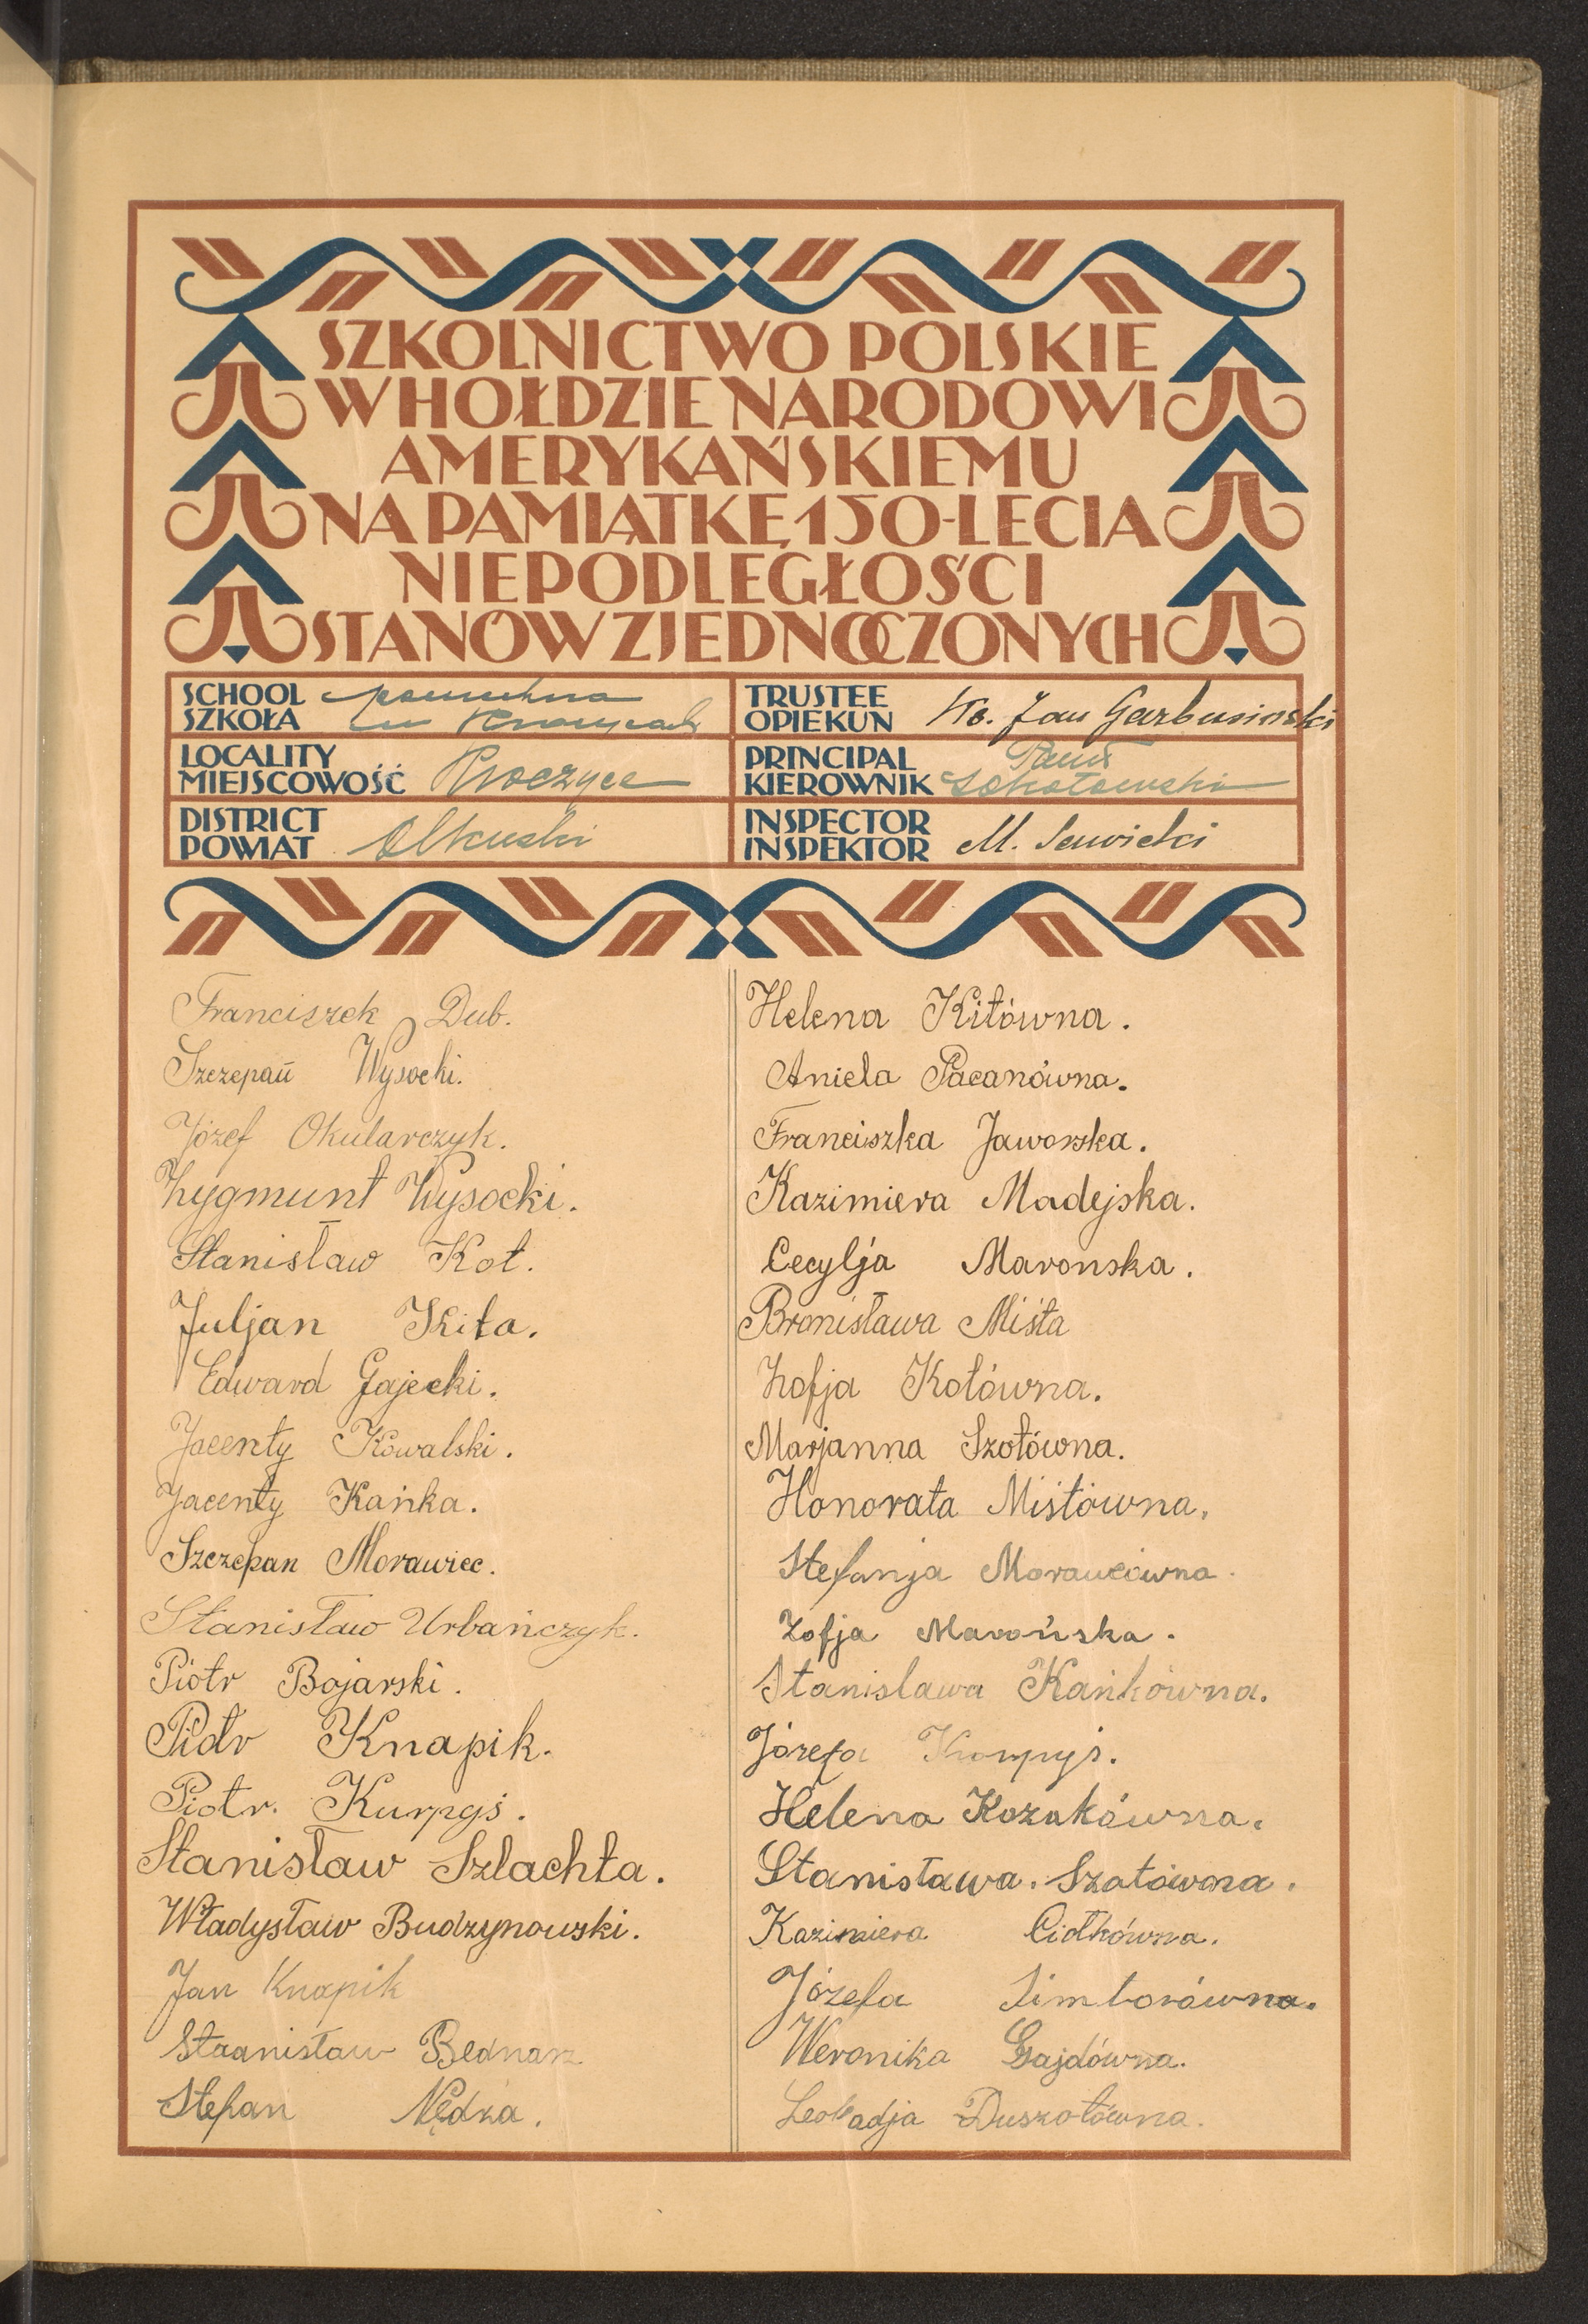 SZKOLNICTWO POLSKIE
W HOŁDZIE NARODOWI
AMERYKAŃSKIEMU
NA PAMIĄTKĘ 150-LECIA
NIEPODLEGŁOŚCI
STANÓW ZJEDNOCZONYCH
SCHOOL
SZKOŁA
powszechna
w
TRUSTEE
OPIEKUN
Ks. Jan Garbusinski
LOCALITY
MIEJSCOWOŚĆ
Kroczyce
PRINCIPAL
KIEROWNIK
Paweł
Sokołowski
DISTRICT
POWIAT
Olkuski
INSPECTOR
INSPEKTOR
M.
Franciszek Dub.
Szczepan Wysocki.
Józef Okularczyk.
Zygmunt Wysocki.
Stanisław Kot.
Juljan Kita.
Edward Gajecki.
Jacenty Kowalski.
Jacenty Kańka.
Szczepan Morawiec.
Stanisław Urbańczyk.
Piotr Bojarski.
Piotr Knapik.
Piotr. Kurpyś.
Stanisław Szlachta.
Władysław Budzynowski.
Jan Knapik
Staanisław Bednarz
Stefan Nędza.
Helena Kitówna.
Aniela Pacanówna.
Franciszka Jaworska.
Kazimiera Madejska.
Cecylja Maronska.
Bronisława Miśta
Zofja Kotówna.
Marjanna Szotówna.
Honorata Miśtówna.
Stefanja Morawcówna.
Zofja Marońska.
Stanislawa Kańkówna.
Józefa
Helena Kozakówna.
Stanisława. Szotówna.
Kazimiera Ciołkówna.
Józefa Simborówna.
Weronika Gajdówna.
Leokadja Duszotówna.